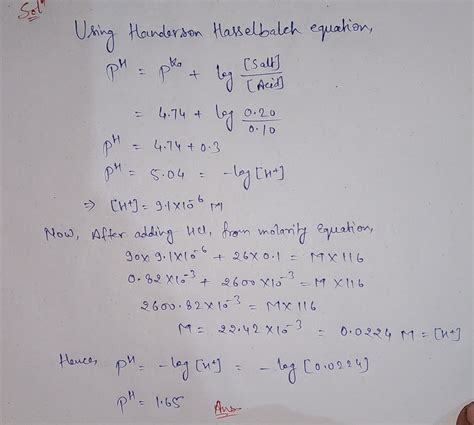 Solⁿ
Using Handerson Hasselbalch equation,
pH = pKa + log [Salt]/[Acid]
= 4.74 + log 0.20/0.10
pH = 4.74 + 0.3
pH = 5.04 = -log [H+]
⇒ [H+] = 9.1×10⁻⁶ M
Now, After adding HCl, from molarity Equation,
90× 9.1×10⁻⁶ + 26×0.1 = M×116
0.82×10⁻³ + 2600×10⁻³ = M×116
2600.82×10⁻³ = M×116
M = 22.42×10⁻³ = 0.0224 M = [H+]
Hence, pH = -log[H+] = -log [0.0224]
pH = 1.65 Ans